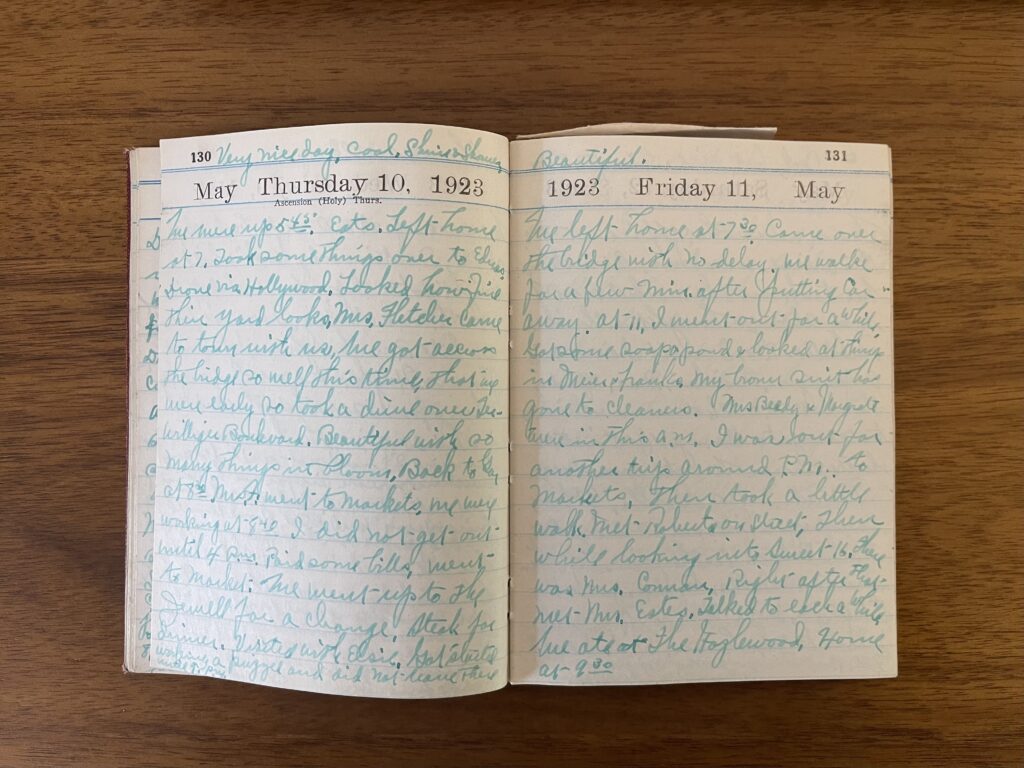 130 Very nice day, cool. Shine & Showers
May Thursday 10, 1923
Ascension (Holy) Thurs.
We were up 5 45. Eats. Left home
at 7. Took some things over to
Drove via Hollywood. Looked how fine
their yard looks, Mrs. Fletcher came
to town with us, We got across
the bridge so well this time, that we
were early so took a drive over Ter-
williger Boulevard. Beautiful with so
many things in bloom, Back to
at 8 Mrs. F. went to markets, we were
working at 8 40 I did not get out
until 4 P.M. Paid some bills, went
to market. We went up to the
Jewell for a change. Steak for
Dinner. Visited with Elsie. Got started
working a puzzle and did not leave there
until
Beautiful. 131
1923 Friday 11, May
We left home at 7 30 Came over
the bridge with no delay, we walke
for a few min. after putting Car
away. at 11, I went out for a while,
Got some soap, & looked at things
in Meier & Franks, My brown suit has
gone to cleaners. Mrs Beady & Margrete
were in this a.m. I was out for
another trip around P.M. to
Markets, Then took a little
walk. Met Roberts on street, Then
while looking into Sweet 16, there
was Mrs. Conman, Right after that
met Mrs. Estes. Talked to each a while
We ate at The Haglewood, Home
at 9 30